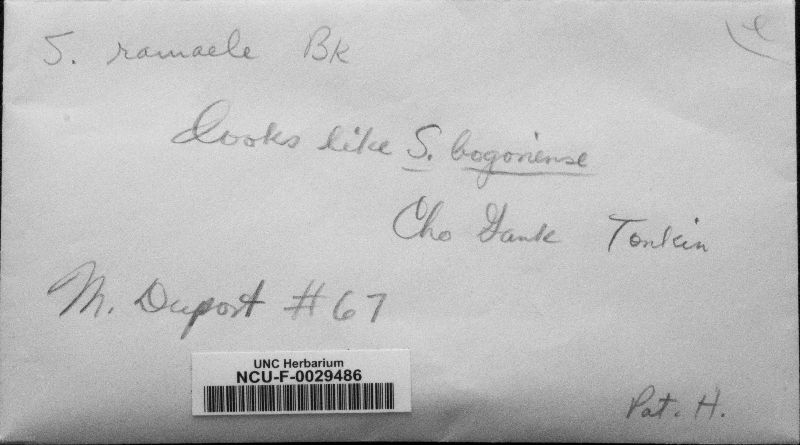 S. ramaele Bk
Looks like S. bogoriense
Cho Ganh Tonkin
M. Duport #67
UNC Herbarium
NCU-F-0029486
Pat. H.